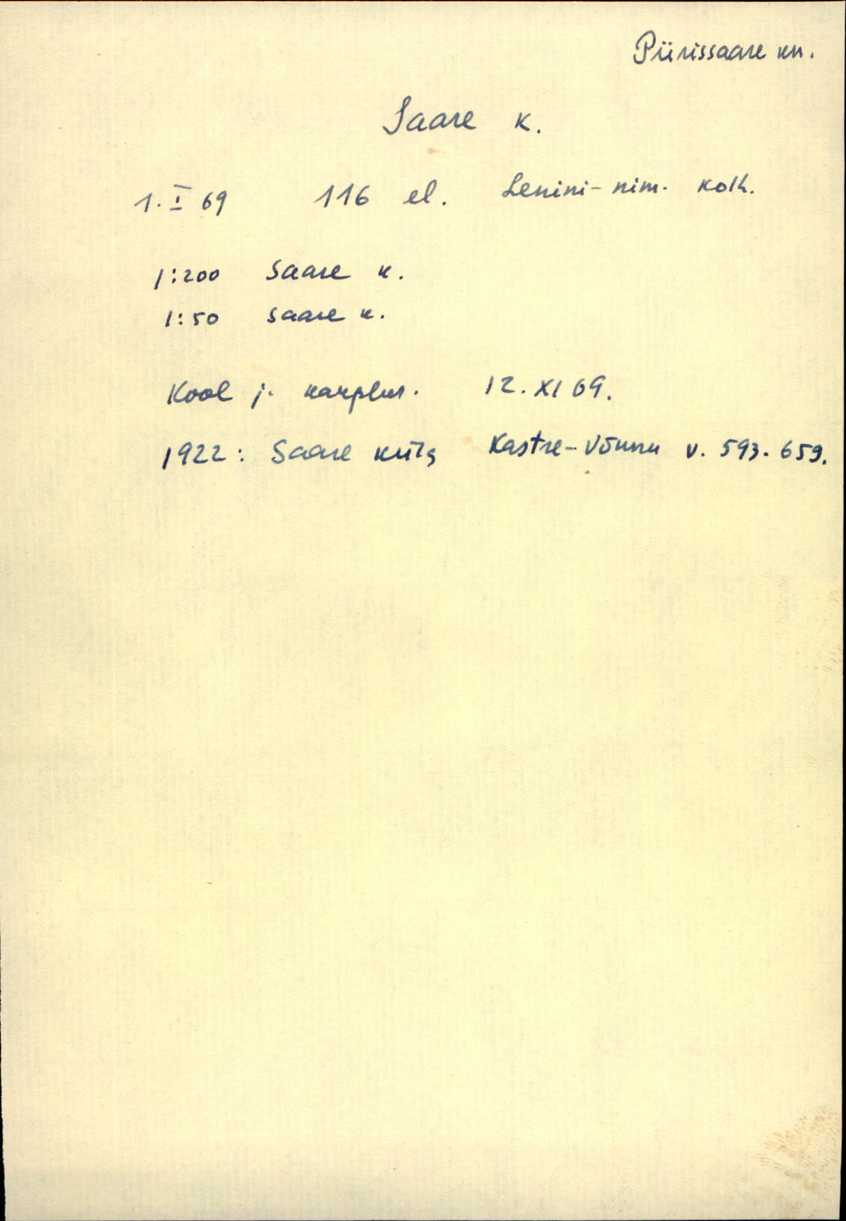 Piirissaare kn.
Saare k.
1. I 69 116 el. Lenini-nim. kolh.
1:200 Saare k.
1:50 Saare k.
Kool j. kauplus. 12. XI 69.
1922: Saare küla Kastre-Võnnu v. 593. 659.